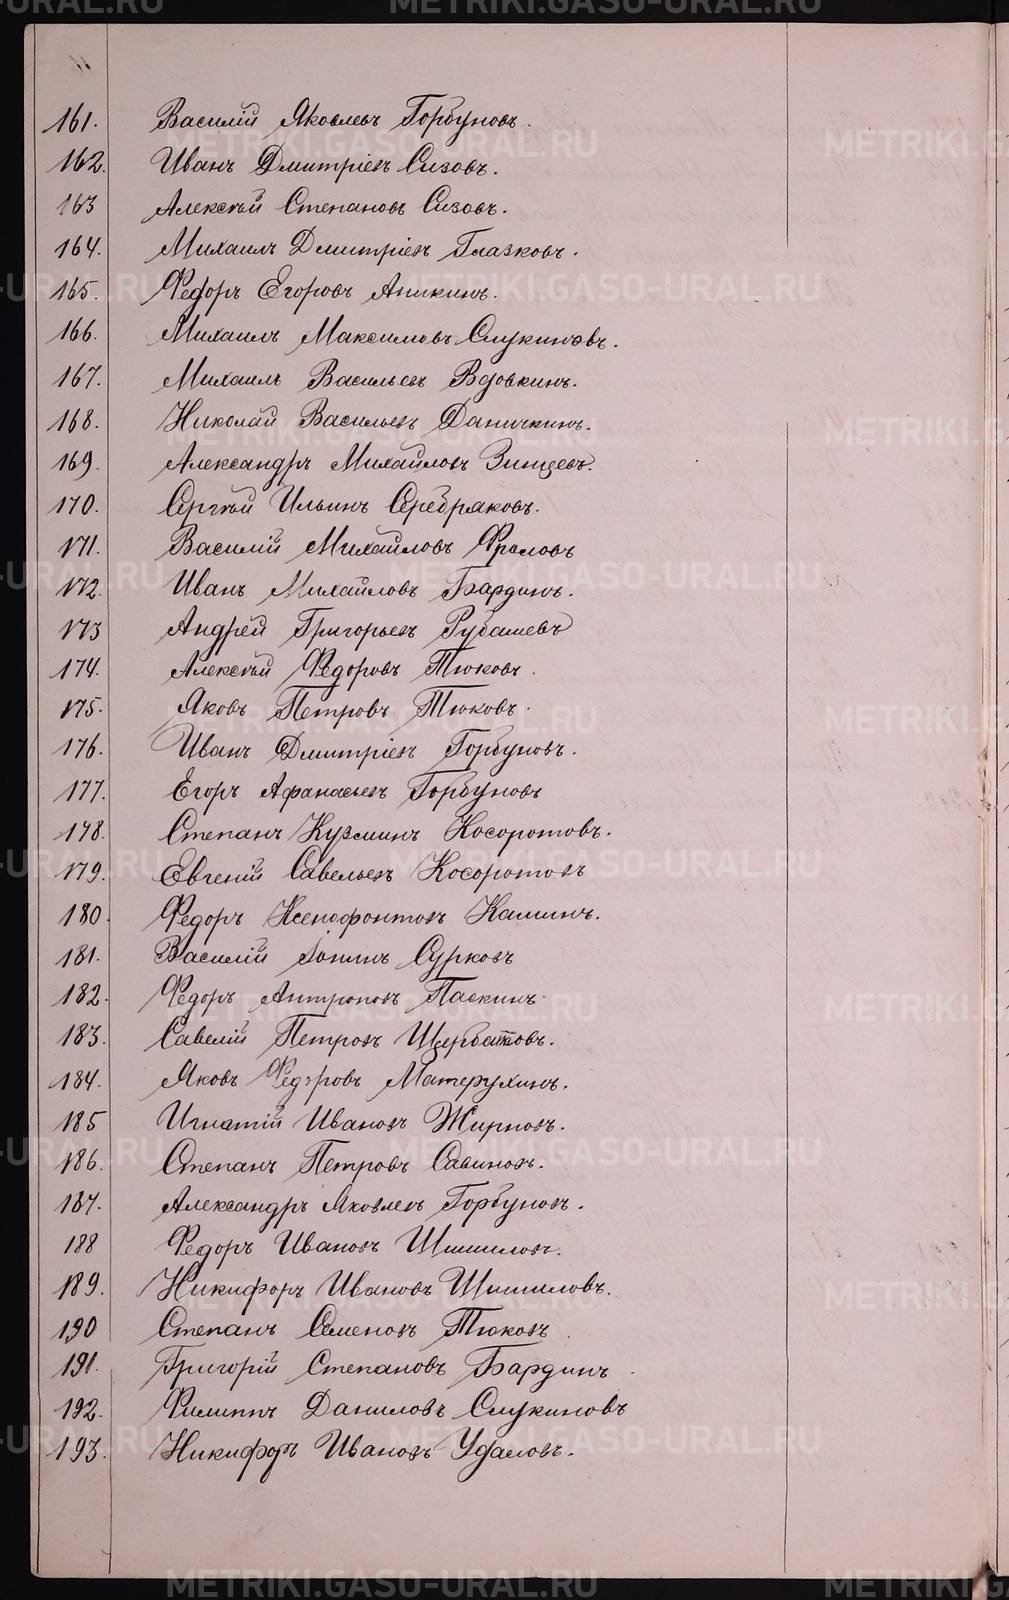 161. Василій Яковлевъ Горбуновъ.
162. Иванъ Дмитріевъ Сизовъ.
163 Алексѣй Степановъ Сизовъ.
164. Михаилъ Дмитріевъ Глазковъ.
165. Федоръ Егоровъ Аникинъ.
166. Михаилъ Максимовъ Слукиновъ.
167. Михаилъ Васильевъ Вдовкинъ.
168. Николай Васильевъ Даничкинъ.
169. Александръ Михайловъ Зинцевъ.
170. Сергѣй Ильинъ Серебряковъ.
171. Василій Михайловъ Фроловъ
172. Иванъ Михайловъ Бардинъ.
173 Андрей Григорьевъ Рубашевъ
174. Алексѣй Федоровъ Тюковъ.
175. Яковъ Петровъ Тюковъ.
176. Иванъ Дмитріевъ Горбуновъ.
177. Егоръ Афанасьевъ Горбуновъ
178. Степанъ Кузминъ Косоротовъ.
179. Евгеній Савельевъ Косоротовъ
180. Федоръ Ксенофонтовъ Калинъ.
181. Василій Іонинъ Сурковъ
182. Федоръ Антроповъ Паскинъ.
183. Савелій Петровъ Щербатовъ.
184. Яковъ Федоровъ Матерухинъ.
185 Игнатій Ивановъ Жирновъ.
186. Степанъ Петровъ Савиновъ.
187. Александръ Яковлевъ Горбуновъ.
188 Федоръ Ивановъ Шишиловъ.
189. Никифоръ Ивановъ Шишиловъ.
190 Степанъ Семеновъ Тюковъ
191. Григорій Степановъ Бардинъ
192. Филиппъ Даниловъ Слукиновъ
193. Никифоръ Ивановъ Удаловъ.